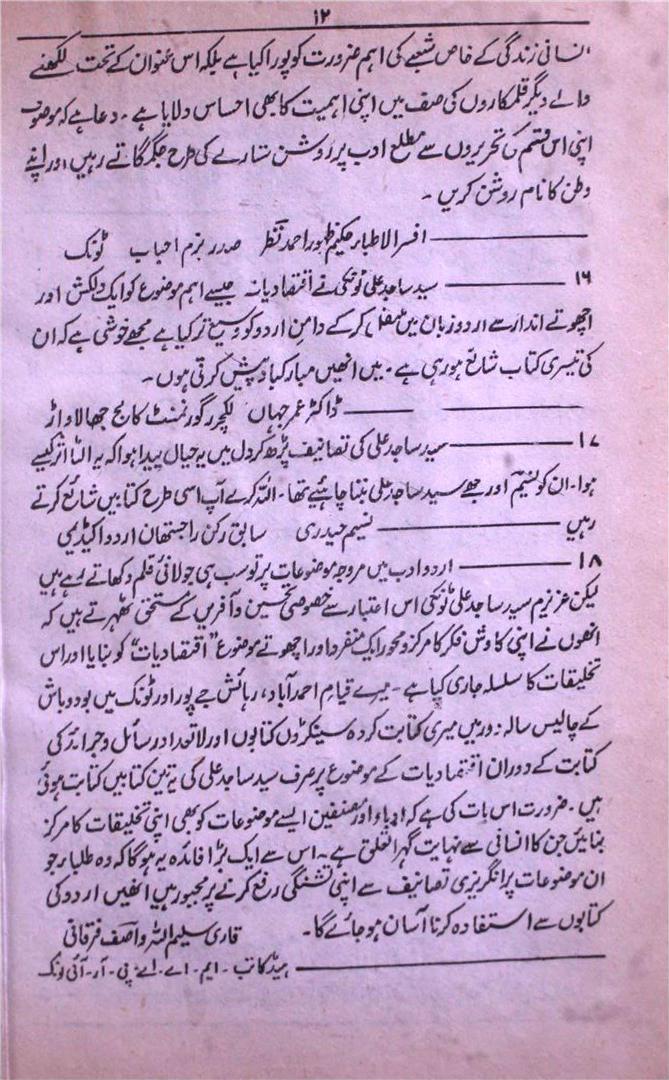 ۱۲
انسانی زندگی کے خاص شعبے کی اہم ضرورت کو پورا کیا ہے بلکہ اس عنوان کے تحت لکھنے
والے دیگر قلمکاروں کی صف میں اپنی اہمیت کا بھی احساس دلایا ہے ۔ دعا ہے کہ موصوف
اپنی اس قسم کی تحریروں سے مطلع ادب پر روشن ستارے کی طرح جگمگاتے رہیں اور اپنے
وطن کا نام روشن کریں ۔
افسر الاطباء حکیم ظہور احمد نظر صدر بزم احباب ٹونک
۱۶ سید ساجد علی ٹونکی نے اقتصادیات جیسے اہم موضوع کو ایک دلکش اور
اچھوتے انداز سے اردو زبان میں منتقل کر کے دامن اردو کو وسیع تر کیا ہے مجھے خوشی ہے کہ ان
کی تیسری کتاب شائع ہو رہی ہے ۔ میں انھیں مبارکباد پیش کرتی ہوں ۔
ڈاکٹر عمر جہاں لکچرر گورنمنٹ کالج جھالاواڑ
۱۷ سید ساجد علی کی تصانیف پڑھ کر دل میں یہ خیال پیدا ہوا کہ یہ الٹا اثر کیسے
ہوا ۔ ان کو نسیم اور مجھے سید ساجد علی بننا چاہئیے تھا ۔ اللہ کرے آپ اسی طرح کتابیں شائع کرتے
رہیں نسیم حیدری سابق رکن راجستھان اردو اکیڈیمی
۱۸ اردو ادب میں مروجہ موضوعات پر تو سب ہی جولانئ قلم دکھاتے رہے ہیں
لیکن عزیزم سید ساجد علی ٹونکی اس اعتبار سے خصوصی تحسین و آفریں کے مستحق ٹھہرتے ہیں کہ
انھوں نے اپنی کاوش فکر کا مرکز و محور ایک منفرد اور اچھوتے موضوع "اقتصادیات" کو بنایا اور اس
تخلیقات کا سلسلہ جاری کیا ہے ۔ میرے قیام احمد آباد، رہائش جے پور اور ٹونک میں بود و باش
کے چالیس سالہ دور میں میری کتابت کردہ سینکڑوں کتابوں اور لاتعداد رسائل و جرائد کی
کتابت کے دوران اقتصادیات کے موضوع پر صرف سید ساجد علی کی یہ تین کتابیں کتابت ہوئی
ہیں ۔ ضرورت اس بات کی ہے کہ ادباء اور مصنفین ایسے موضوعات کو بھی اپنی تخلیقات کا مرکز
بنائیں جن کا انسانی سے نہایت گہرا تعلق ہے ۔ اس سے ایک بڑا فائدہ یہ ہوگا کہ وہ طلباء جو
ان موضوعات پر انگریزی تصانیف سے اپنی تشنگی رفع کرنے پر مجبور ہیں انھیں اردو کی
کتابوں سے استفادہ کرنا آسان ہو جائے گا ۔ قاری سلیم اللہ واصف فرقانی
ہیڈ کاتب ۔ ایم ۔ اے ۔ اے ۔ پی ۔ آر ۔ آئی ٹونک